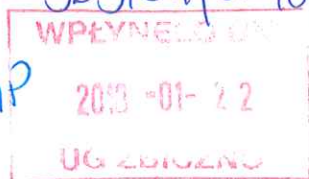 P
WPŁYNĘŁO DN
2013 -01- 2 2
UG ZBICZNO